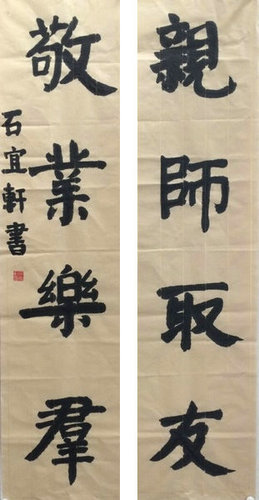 親師取友
敬業樂羣
石宜軒書